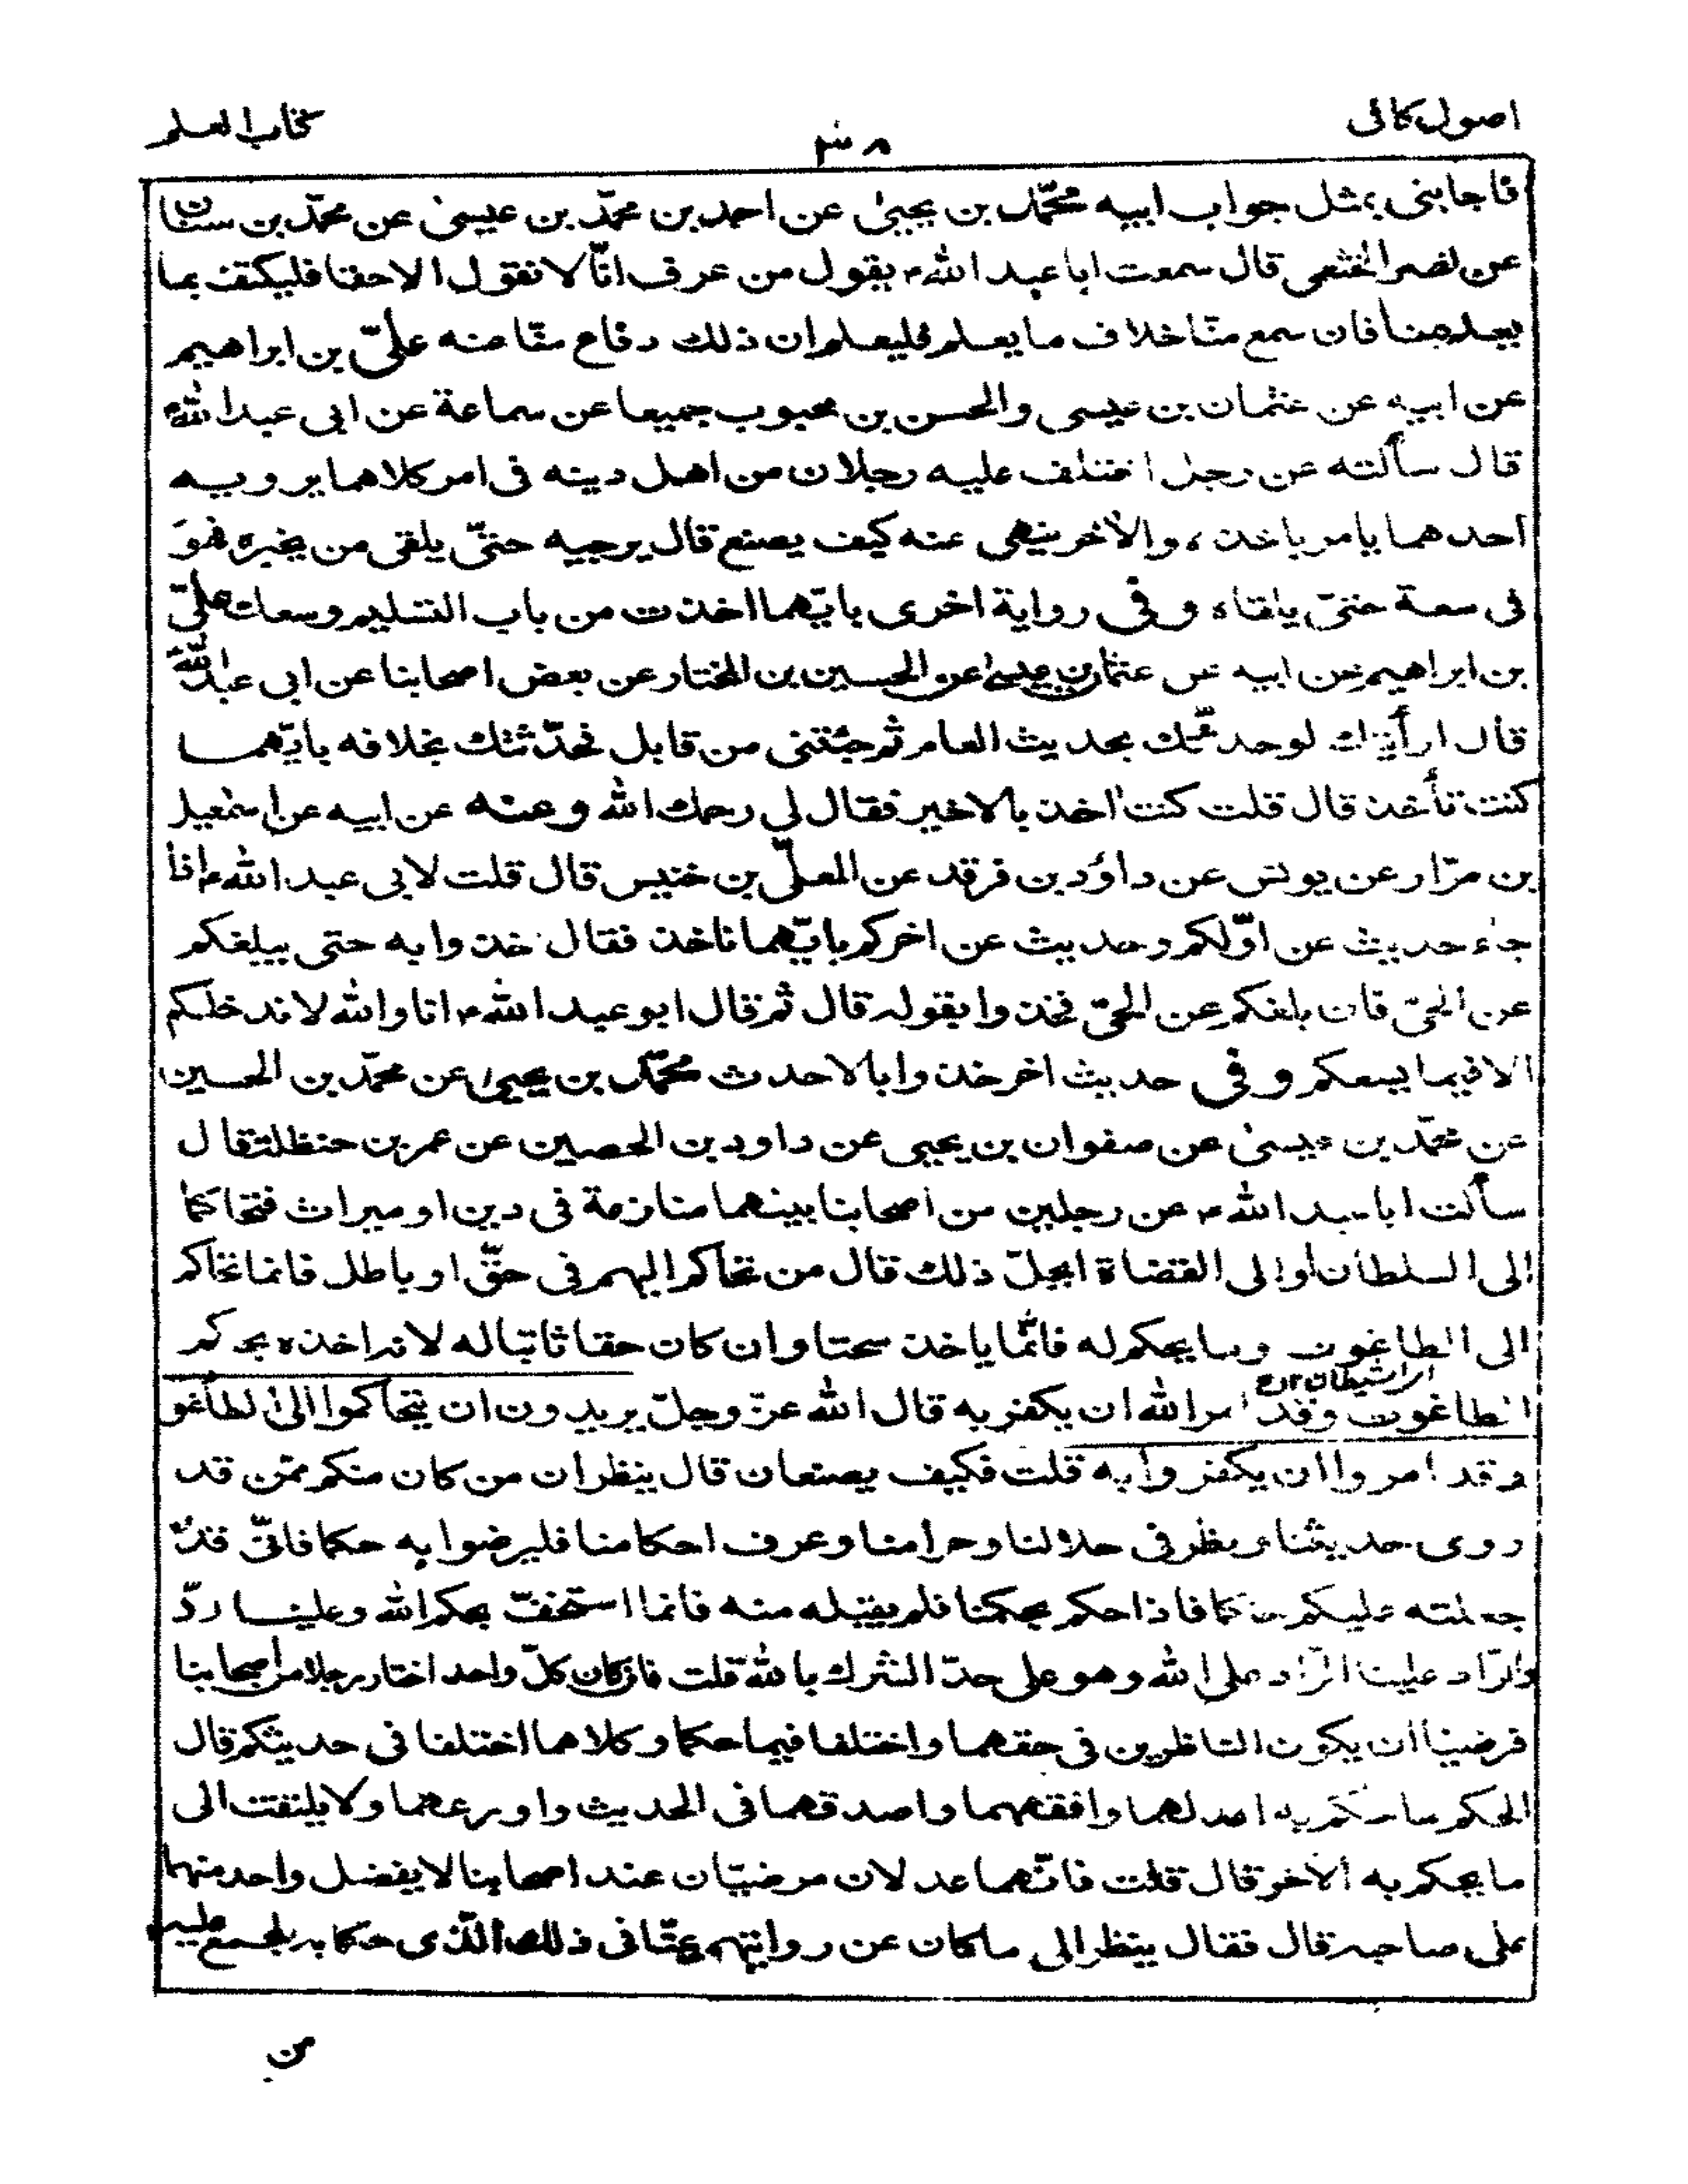 اصول كافى
٣٨
كتاب العلم
فاجابنى بمثل جواب ابيه محمّد بن يحيىٰ عن احمد بن محمّد بن عيسىٰ عن محمّد بن سنان
عن نصر الخثعمى قال سمعت ابا عبد الله ء يقول من عرف انّا لا نقول الا حقا فليكتف بما
يعلم منا فان سمع منّا خلاف ما يعلم فليعلم ان ذلك دفاع منّا عنه علىّ بن ابراهيم
عن ابيه عن عثمان بن عيسى والحسن بن محبوب جميعا عن سماعة عن ابى عبد الله ء
قال سألته عن رجل اختلف عليه رجلان من اهل دينه فى امر كلاهما يرويه
احدهما يامر باخذه والاخر ينهى عنه كيف يصنع قال يرجيه حتىّ يلقى من يخبره فهوَ
فى سعة حتىّ يلقاه و فى رواية اخرى بايّهما اخذت من باب التسليم وسعك علىّ
بن ابراهيم عن ابيه عن عثمان بن عيسىٰ عن الحسين بن المختار عن بعض اصحابنا عن ابى عبد اللّٰه
قال ارأيتك لو حدّثتك بحديث العام ثم جئتنى من قابل فحدّثتك بخلافه بايّهما
كنت تأخذ قال قلت كنت اخذ بالاخير فقال لى رحمك الله وعنه عن ابيه عن اسمعيل
بن مرّار عن يونس عن داؤد بن فرقد عن المعلّى بن خنيس قال قلت لابى عبد الله ء اذا
جاء حديث عن اوّلكم وحديث عن اخركم بايّهما ناخذ فقال خذوا به حتى يبلغكم
عن الحىّ فان بلغكم عن الحىّ فخذوا بقوله قال ثم قال ابو عبد الله ء انا والله لا ندخلكم
الا فيما يسعكم و فى حديث اخر خذوا بالاحدث محمّد بن يحيىٰ عن محمّد بن الحسين
عن محمّد بن عيسىٰ عن صفوان بن يحيى عن داود بن الحصين عن عمر بن حنظلة قال
سألت ابا عبد الله ء عن رجلين من اصحابنا بينهما منازعة فى دين او ميراث فتحاكما
الى السلطان او الى القضاة ايحلّ ذلك قال من تحاكم اليهم فى حقّ او باطل فانما تحاكم
الى الطاغوت وما يحكم له فانّما ياخذ سحتا وان كان حقا ثابتا له لانه اخذه بحكم
الطاغوت وقد امر الله ان يكفر به قال الله عزّ وجلّ يريدون ان يتحاكموا الى الطاغو
وقد امروا ان يكفروا به قلت فكيف يصنعان قال ينظران من كان منكم ممّن قد
روى حديثنا و نظر فى حلالنا وحرامنا وعرف احكامنا فليرضوا به حكما فانىّ قد
جعلته عليكم حاكما فاذا حكم بحكمنا فلم يقبله منه فانما استخفّ بحكم الله وعلينا ردّ
والرّاد علينا الرّاد على الله وهو على حدّ الشرك بالله قلت فان كان كلّ واحد اختار رجلا من اصحابنا
فرضيا ان يكون الناظرين فى حقهما واختلفا فيما حكما وكلاهما اختلفا فى حديثكم قال
الحكم ما حكم به اعدلهما وافقههما واصدقهما فى الحديث واورعهما ولا يلتفت الى
ما يحكم به الاخر قال قلت فانّهما عدلان مرضيّان عند اصحابنا لا يفضل واحد منهما
على صاحبه قال فقال ينظر الى ما كان عن روايتهم عنّا فى ذلك الّذى حكما به المجمع عليه
من